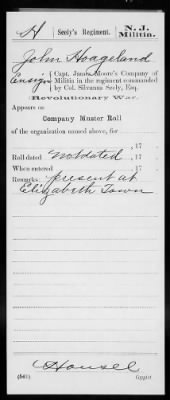 H Seely's Regiment. N. J. Militia.
John Hoageland
Ensign { Capt. James Moore's Company of
Militia in the regiment commanded
by Col. Silvanus Seely, Esq.
Revolutionary War.
Appears on
Company Muster Roll
of the organization named above, for , 17 .
Roll dated Not dated , 17 .
When entered , 17 .
Remarks: present at
Elizabeth Town
Housel
(541) Copyist